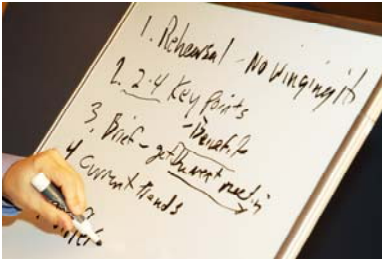 1. Rehearsal - No Winging it
2. 2-4 Key Points
- Benefit
3. Brief - get
4 Current trends